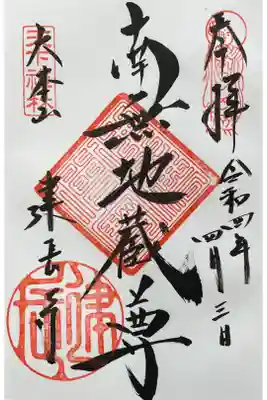 奉拝
令和四年
四月三日
南無地蔵尊
大本山
建長寺